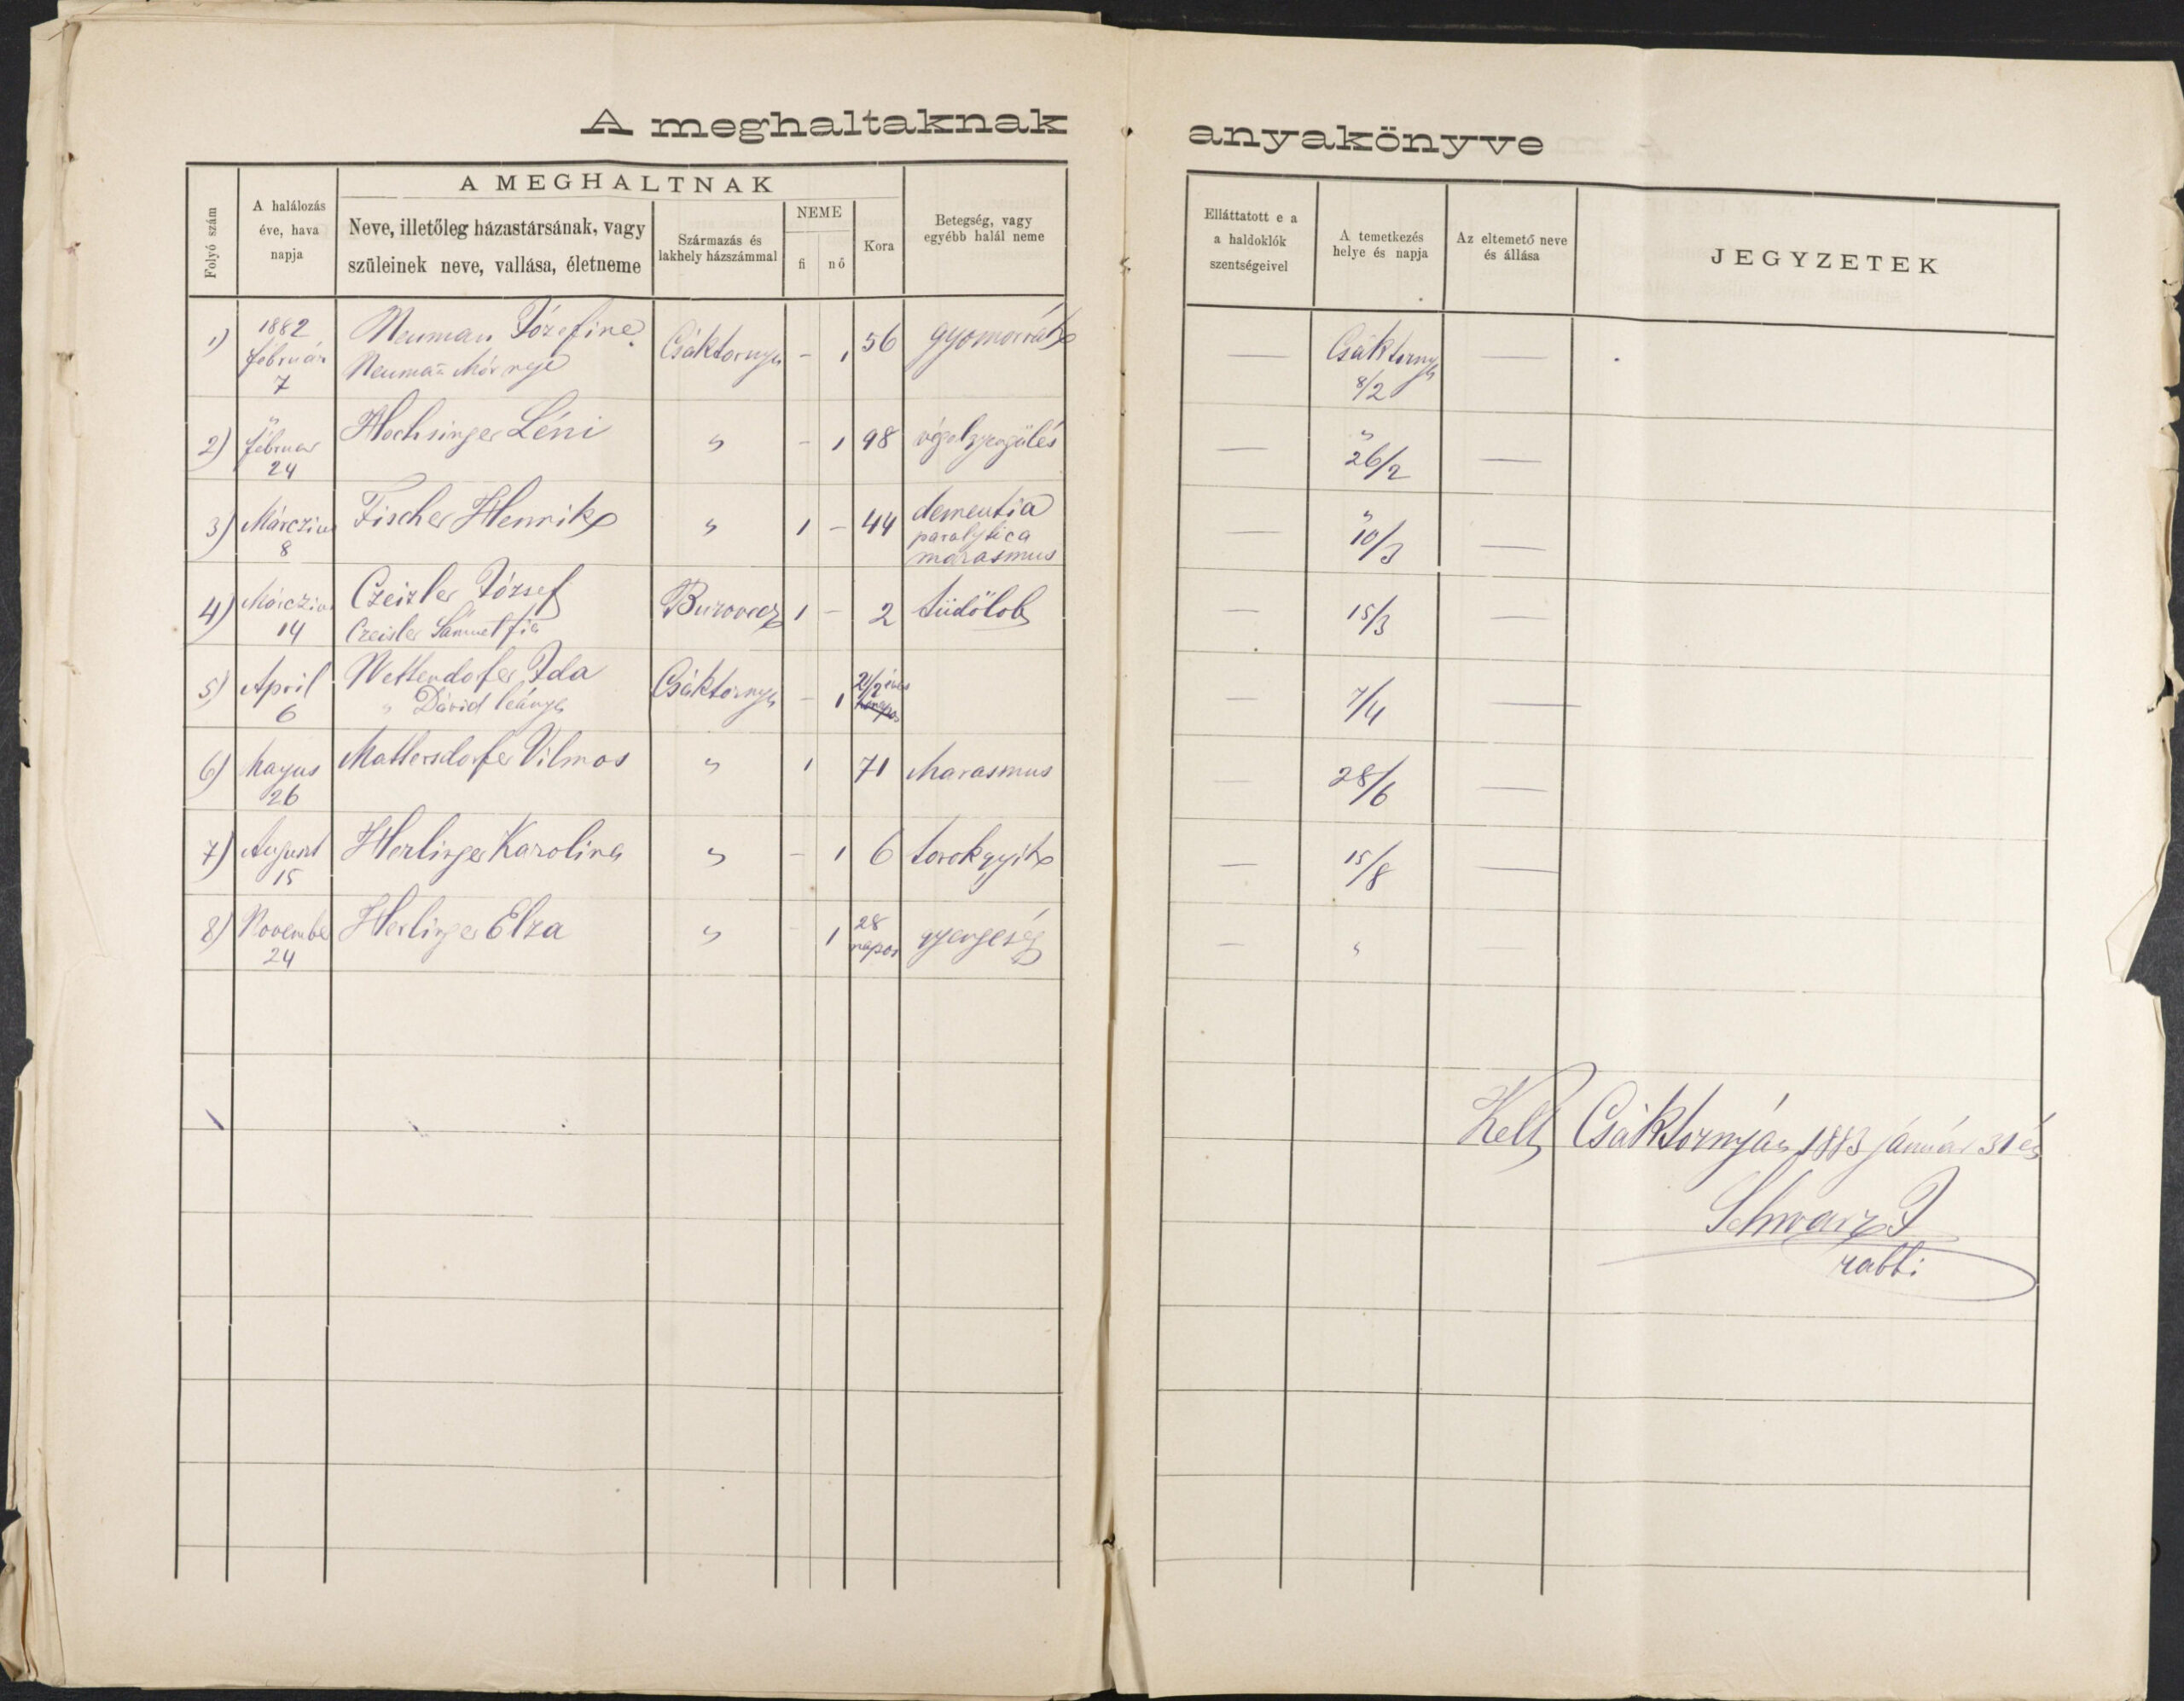 A meghaltaknak anyakönyve
Folyó szám
A halálozás
éve, hava
napja
A MEGHALTNAK
Neve, illetőleg házastársának, vagy
szüleinek neve, vallása, életneme
Származás és
lakhely házszámmal
NEME
fi nő
Kora
Betegség, vagy
egyébb halál neme
Elláttatott e a
a haldoklók
szentségeivel
A temetkezés
helye és napja
Az eltemető neve
és állása
JEGYZETEK
1) 1882 Neuman Józefine Csáktornya – 1 56 gyomorrák — Csáktornya —
február Neuman̄ Mór neje 8/2
7
2) " Hochsinger Léni " – 1 98 végelgyengülés — " —
február 26/2
24
3) Márczius Fischer Henrik " 1 – 44 dementia — " —
8 paralytica 10/3
marasmus
4) Márczius Czeizler József Burovecz 1 – 2 tüdőlob — 15/3 —
14 Czeisler Sámuel fia
5) April Wettendorfer Ida Csáktornya – 1 2 1/2 éves — 7/4 —
6 " Dávid leánya hónapos
6) Mayus Mattersdorfer Vilmos " 1 71 Marasmus — 28/6 —
26
7) August Herlinger Karolina " – 1 6 torokgyík — 15/8 —
15
8) November Herlinger Elza " – 1 28 gyengeség — " —
24 napos
Kelt Csáktornyán 1883 január 31én
Schwarz J
rabbi